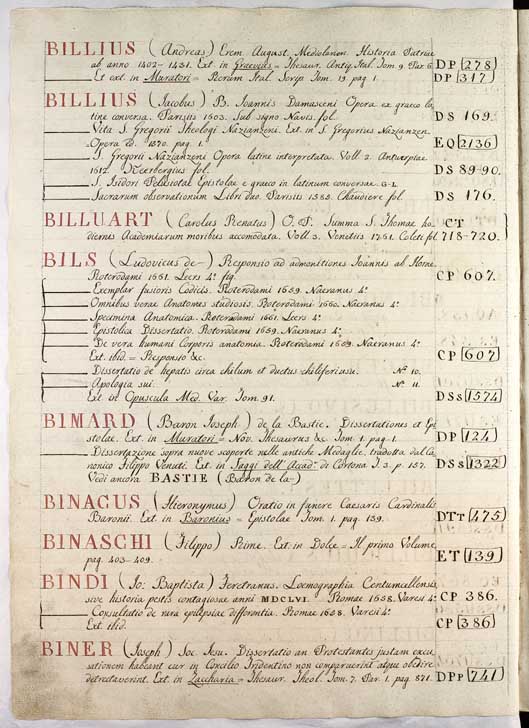 BILLIUS (Andreas) Erem. August. Mediolanen. Historia Patriae
ab anno 1402-1431. Ext. in Graevius = Thesaur. Antiq. Ital. Tom. 9. Par. 6. DP 278
Et ext. in Muratori = Rerum Ital. Scrip. Tom. 19. pag. 1. DP 317
BILLIUS (Jacobus) B. Joannis Damasceni Opera ex graeco la
tine conversa. Parisiis 1603. Sub signo Navis. fol. DS 169.
Vita S. Gregorii Theologi Nazianzeni. Ext. in S. Gregorius Nazianzen.
Opera ed. 1570. pag. 1. EQ 2136
S. Gregorii Nazianzeni Opera latine interpretata. Voll. 2. Antverpiae
1612. Neerbergius fol. DS 89-90.
S. Isidori Pelusiotae Epistolae e graeco in latinum conversae. G-L
Sacrarum observationum Libri duo. Parisiis 1585. Chaudiere fol. DS 176.
BILLUART (Carolus Renatus) O. P. Summa S. Thomae ho CT
diernis Academiarum moribus accomodata. Voll. 3. Venetiis 1761. Coleti fol. 718-720.
BILS (Ludovicus de-) Responsio ad admonitiones Joannis ab Horne.
Roterodami 1661. Leers 4º fig. CP 607.
Exemplar fusioris Codicis. Roterodami 1659. Naeranus 4º
Omnibus verae Anatomes studiosis. Roterodami 1660. Naeranus 4º
Specimina Anatomica. Roterodami 1661. Leers 4º
Epistolica Dissertatio. Roterodami 1659. Naeranus 4º
De vera humani Corporis anatomia. Roterodami 1659. Naeranus 4º
Ext. ibid = Responsio &c. CP 607
Dissertatio de hepatis circa chilum et ductus chiliferi usu. Nº 10.
Apologia sui. Nº 11.
Ext. in Opuscula Med. Var. Tom. 91. DSs 1574
BIMARD (Baron Joseph) de la Bastie. Dissertationes et Epi
stolae. Ext. in Muratori = Nov. Thesaurus &c. Tom. 1. pag. 1. DP 124
Dissertazione sopra nuove scoperte nelle antiche Medaglie, tradotta dal Ca
nonico Filippo Venuti. Ext. in Saggi dell' Accad. di Cortona T. 3. p. 157. DSs 1322
Vedi ancora BASTIE (Baron de la-)
BINACUS (Hieronymus) Oratio in funere Caesaris Cardinalis
Baronii. Ext. in Baronius = Epistolae Tom. 1. pag. 139. DTt 475
BINASCHI (Filippo) Rime. Ext. in Dolce = Il primo Volume
pag. 403-409. ET 139
BINDI (Jo: Baptista) Feretranus. Loemographia Centumcellensis
sive historia pestis contagiosae anni MDCLVI. Romae 1658. Varesi 4º CP 386.
Consultatio de rara epilepsiae differentia. Romae 1658. Varesi 4º
Ext. ibid. CP 386
BINER (Joseph) Soc. Jesu. Dissertatio an Protestantes justam excu
sationem habeant cur in Concilio Tridentino non comparuerint atque obedire
detrectaverint. Ext. in Zaccharia = Thesaur. Theol. Tom. 7. Par. 1. pag. 871. DPp 741